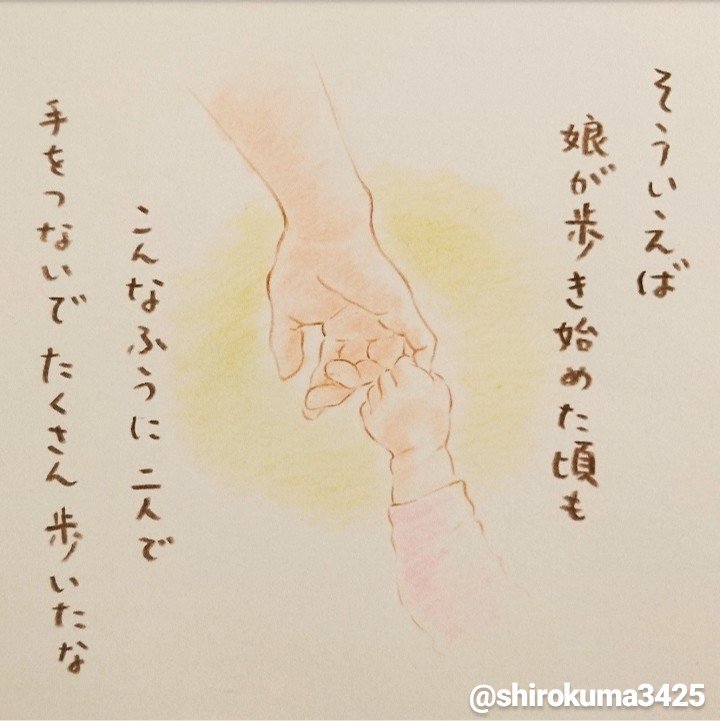 そういえば
娘が歩き始めた頃も
こんなふうに 二人で
手をつないで たくさん 歩いたな
@shirokuma3425